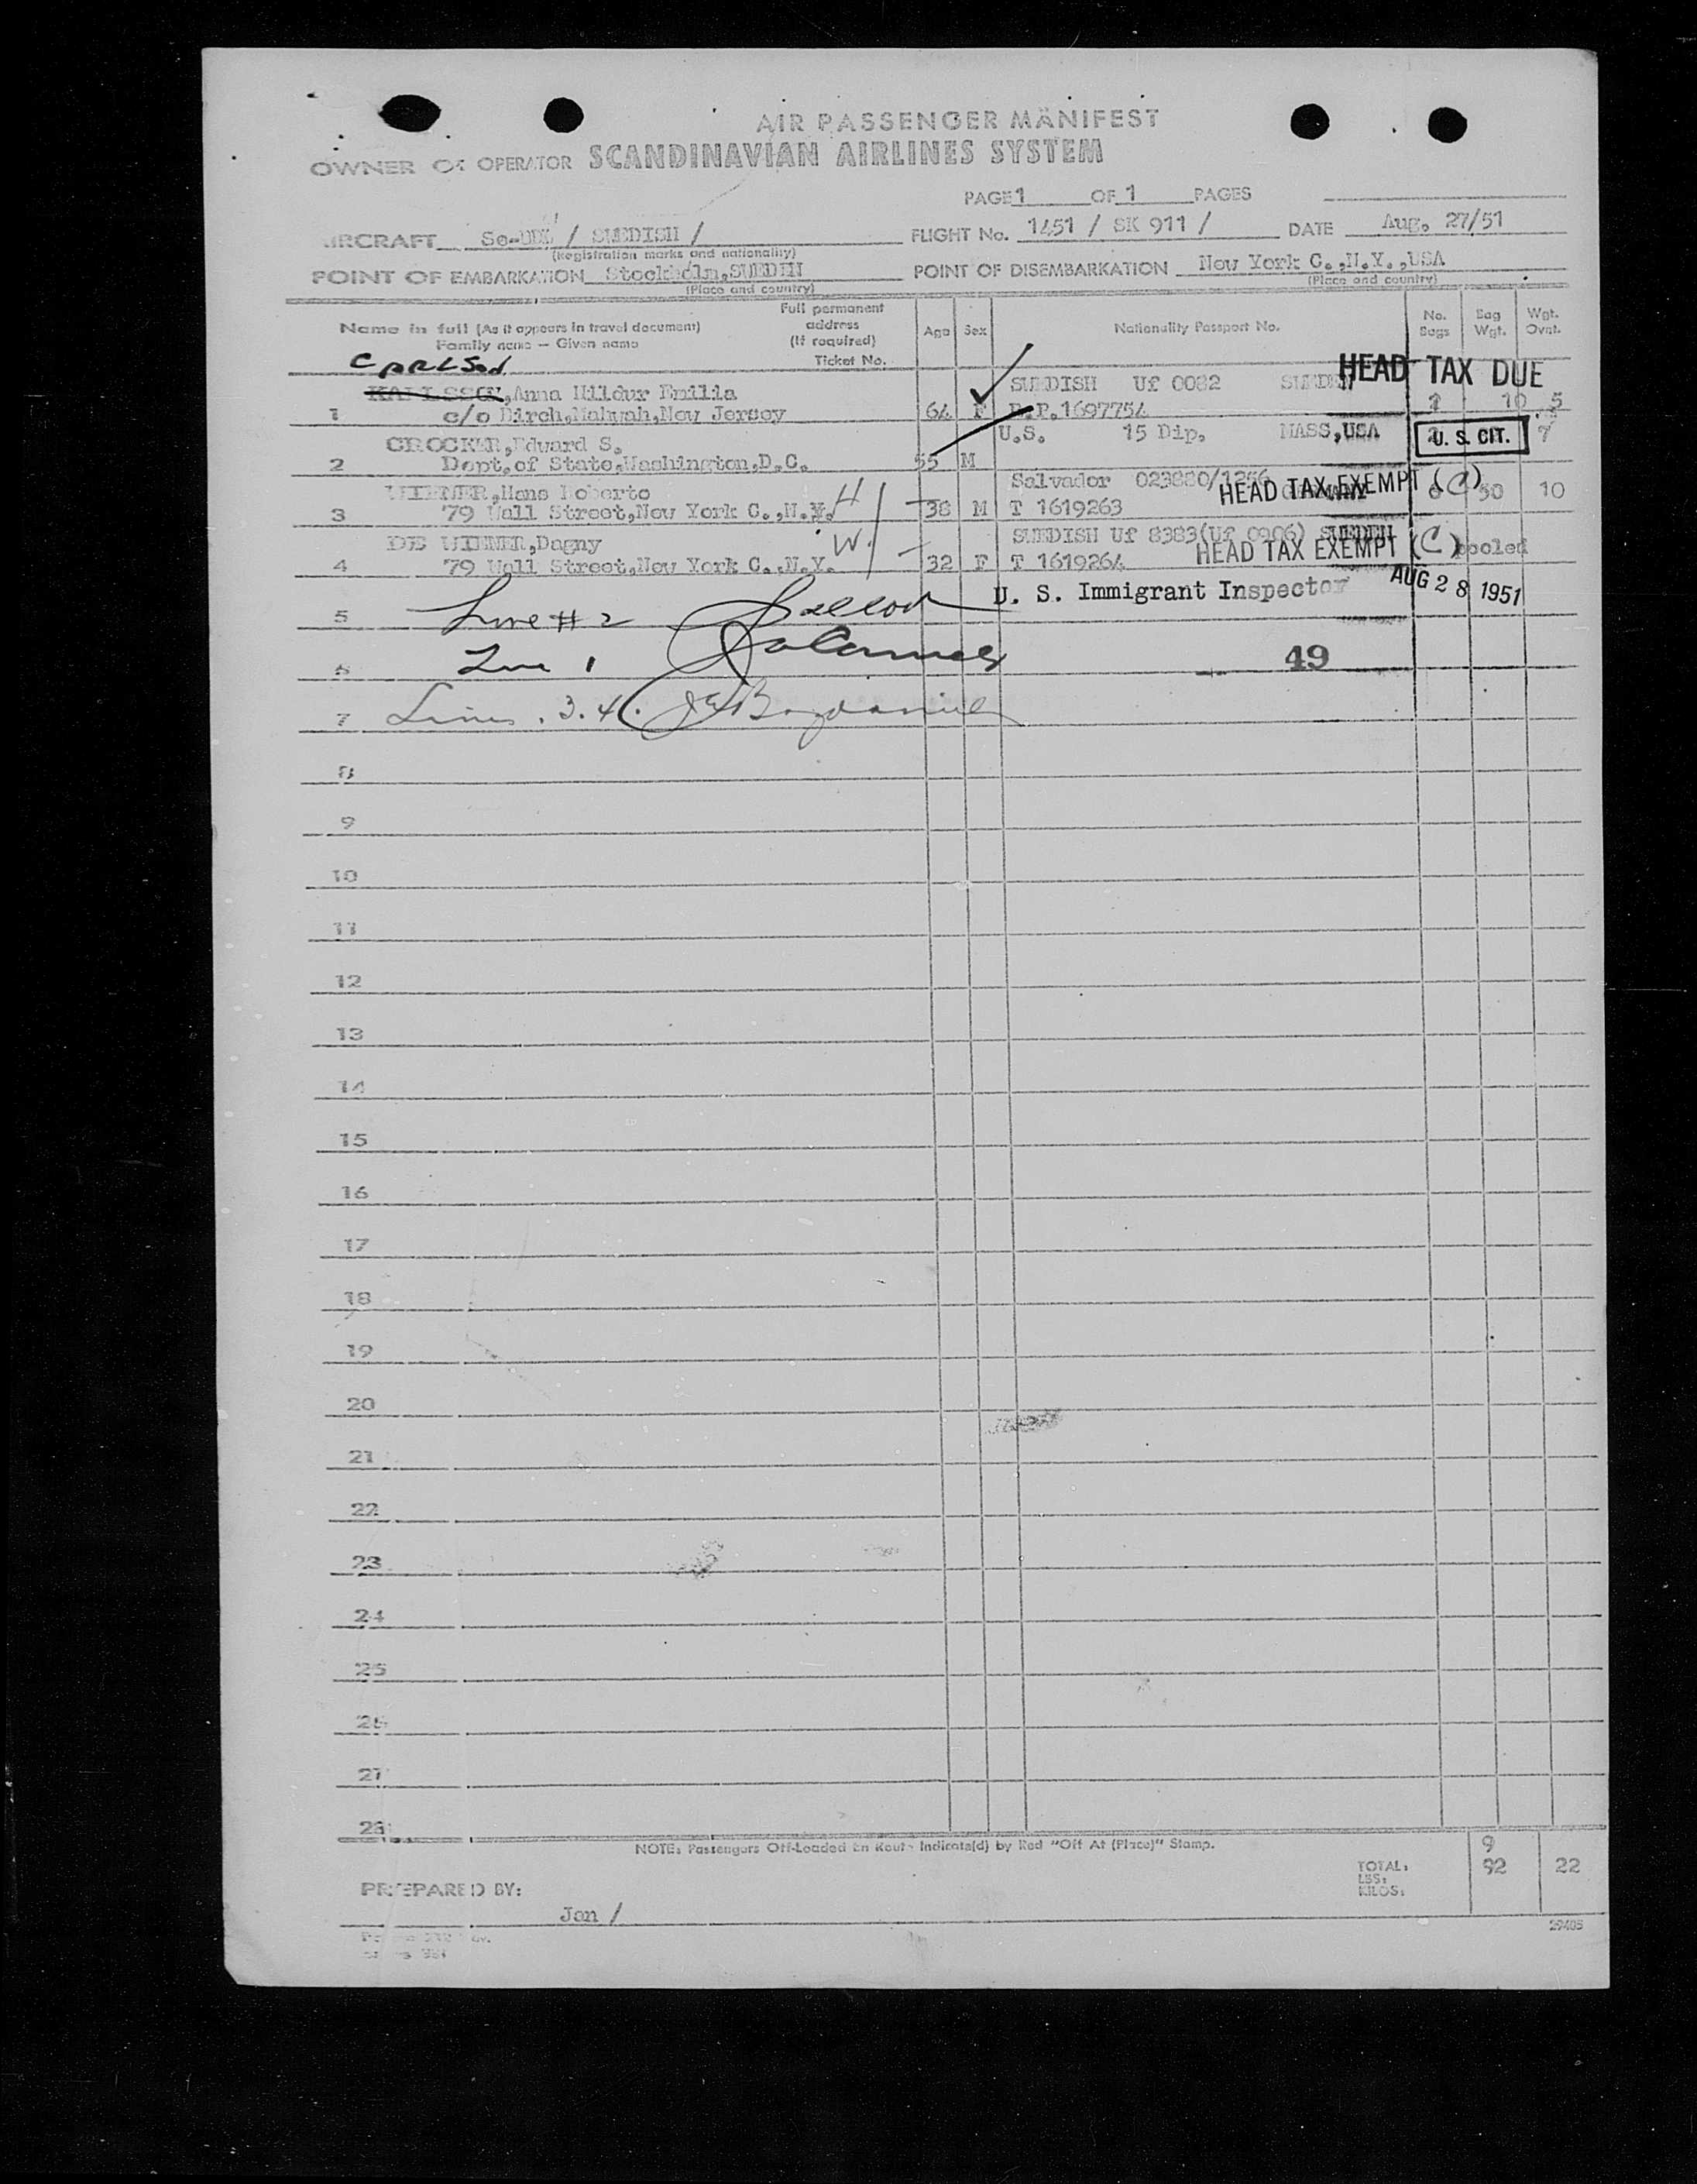 AIR PASSENGER MANIFEST
OWNER OR OPERATOR SCANDINAVIAN AIRLINES SYSTEM
PAGE 1 OF 1 PAGES
AIRCRAFT / SWEDISH / FLIGHT No. 1451 / SK 911 / DATE Aug. 27/51
(Registration marks and nationality)
POINT OF EMBARKATION Stockholm,SWEDEN POINT OF DISEMBARKATION New York C.,N.Y.,USA
(Place and country) (Place and country)
Name in full (As it appears in travel document) Full permanent address (If required) Age Sex Nationality Passport No. No. Bags Bag Wgt. Wgt. Ovnt.
Family name – Given name Ticket No.
CARLSON HEAD TAX DUE
KARLSSON,Anna Hildur Emilia SWEDISH Uf 0082 SWEDEN
1 c/o Birch,Mahwah,New Jersey 64 F 1697754 10 5
CROCKER,Edward S. U.S. 15 Dip. MASS,USA U. S. CIT. 7
2 Dept.of State,Washington,D.C. 55 M
WIENER,Hans Roberto H Salvador 023880/1256 HEAD TAX EXEMPT (C)
3 79 Wall Street,New York C.,N.Y. 38 M T 1619263 50 10
DE WIENER,Dagny W. SWEDISH Uf 8383(Uf 0906) SWEDEN
4 79 Wall Street,New York C.,N.Y. 32 F T 1619264 HEAD TAX EXEMPT (C) pooled
U. S. Immigrant Inspector AUG 28 1951
5 Line # 2
6 Line 1 49
7 Lines . 3. 4
8
9
10
11
12
13
14
15
16
17
18
19
20
21
22
23
24
25
26
27
28
NOTE: Passengers Off-Loaded En Route Indicate(d) by Red "Off At (Place)" Stamp. 9
TOTAL: 92 22
LBS:
KILOS:
PREPARED BY:
Jon /
29405